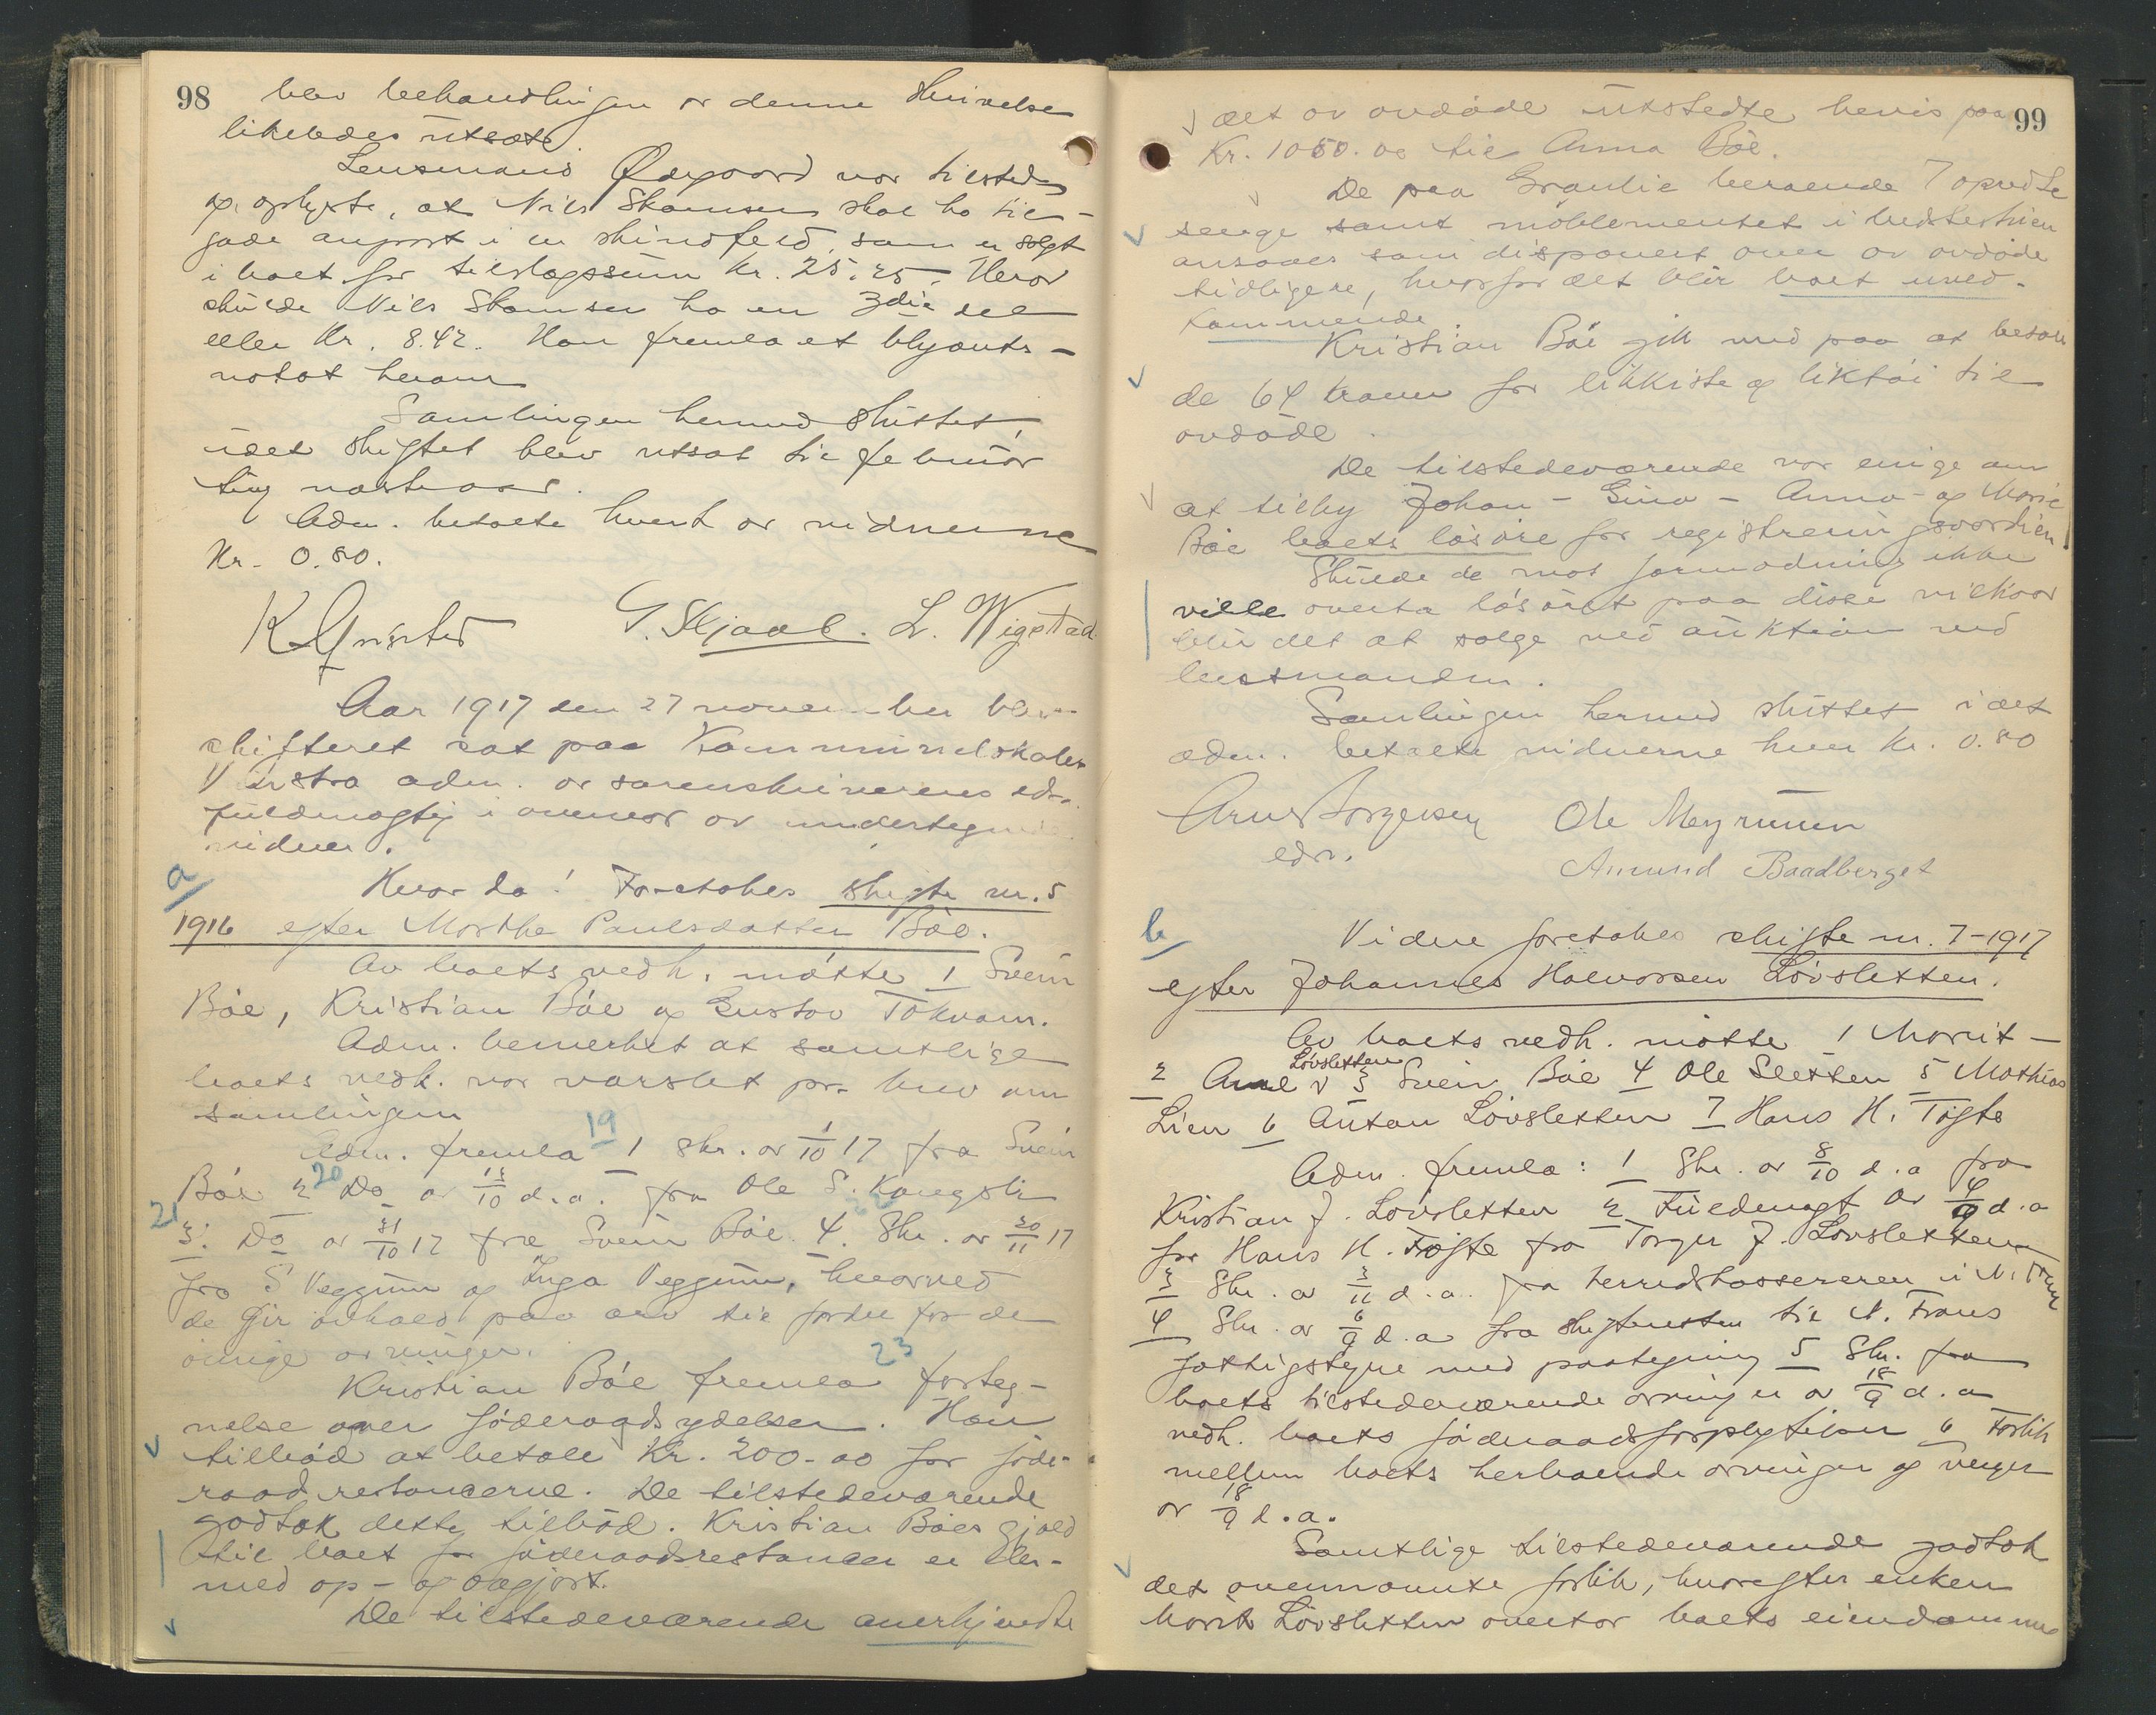 98 blev behandlingen av denne henvelse
likeledes utsat.
Lensmand Ødegaard var tilstede
og oplyste, at Nils Skamsen skal ha til-
gode anpart i en skindfeld, som er solgt
i boet for tilslagssum Kr. 25.25. Herav
skulde Nils Skamsen ha en 3die del
eller Kr. 8.42. Han fremla et blyants-
notat herom
Samlingen hermed sluttet,
idet skiftet blev utsat til februar
ting næste aar.
Adm. betalte hvert av vidnerne
Kr. 0.80.
G. Skjaak. L. Wigstad
Aar 1917 den 27 november blev
skifteret sat paa Kommunelokalet
Vinstra adm. av sorenskriverens eds.
fuldmægtig i overvær av undertegnede
vidner.
a
Hvorda: Foretokes skifte nr. 5
1916 efter Marthe Paulsdatter Bøe.
Av boets vedk. møtte 1 Svein
Bøe, Kristian Bøe og Gustav Tokvam.
Adm. bemerket at samtlige
boets vedk. var varslet pr. brev om
samlingen
19
Adm. fremla 1 skr. av 1/10 17 fra Svein
20
Bøe 2 Do av 13/10 d.a. fra Ole S. Kongsli
21
3. Do av 31/10 17 fra Svein Bøe 4. Skr. av 20/11 17
fra S Veggum og Inga Veggum, hvorved
de gir avkald paa arv til fordel for de
øvrige arvinger.
23
Kristian Bøe fremla forteg-
nelse over føderaadsydelser. Han
tilbød at betale Kr. 200.00 for føde-
raadrestancerne. De tilstedeværende
godtok dette tilbød. Kristian Bøes gjæld
til boet for føderaadsrestancer er der-
med op- og avgjort.
De tilstedeværende anerkjendte
99
det av avdøde utstedte bevis paa
Kr. 1050.00 til Anna Bøe.
De paa Graulie beroende 7 opredte
senge samt møblementet i bedstestuen
ansaaes som disponert over av avdøde
tidligere, hvorfor det blir boet uved-
kommende.
Kristian Bøe gik med paa at betale
de 64 kroner for likkiste og liktøi til
avdøde.
De tilstedeværende var enige om
at tilby Johan - Gina - Anna - og Marie
Bøe boets løsøre for registreringsværdien
Skulde de mot formodning ikke
ville overta løsøret paa disse vilkaar
blir det at sælge ved auktion ved
lensmanden.
Samlingen hermed sluttet idet
adm. betalte vidnerne hver Kr. 0.80
Arne Jørgensen Ole Megrunen
edsv.
Amund Baadberget
b
Videre foretokes skifte nr. 7-1917
efter Johannes Halvorsen Løvsletten.
Av boets vedk. møtte 1 Marit -
2 Anne Løvsletten 3 Svein Bøe 4 Ole Sletten 5 Mathias
Lien 6 Anton Løvsletten 7 Hans H. Tofte
Adm. fremla: 1 Skr. av 8/10 d.a fra
Kristian J. Løvsletten 2 Fuldmagt av 4/9 d.a
for Hans H. Tofte fra Torger J. Løvsletten
3 Skr. av 3/11 d.a. fra herredskassereren i N. Fron
4 Skr. av 6/9 d.a fra skifteretten til N. Frons
fattigstyre med paategning 5 Skr. fra
boets tilstedeværende arvinger av 18/9 d.a
vedk. boets føderaadsforpligtelser 6 Forlik
mellem boets herboende arvinger og verger
av 18/9 d.a.
Samtlige tilstedeværende godtok
det ovennævnte forlik, hvorefter enken
Marit Løvsletten overtar boets eiendomme